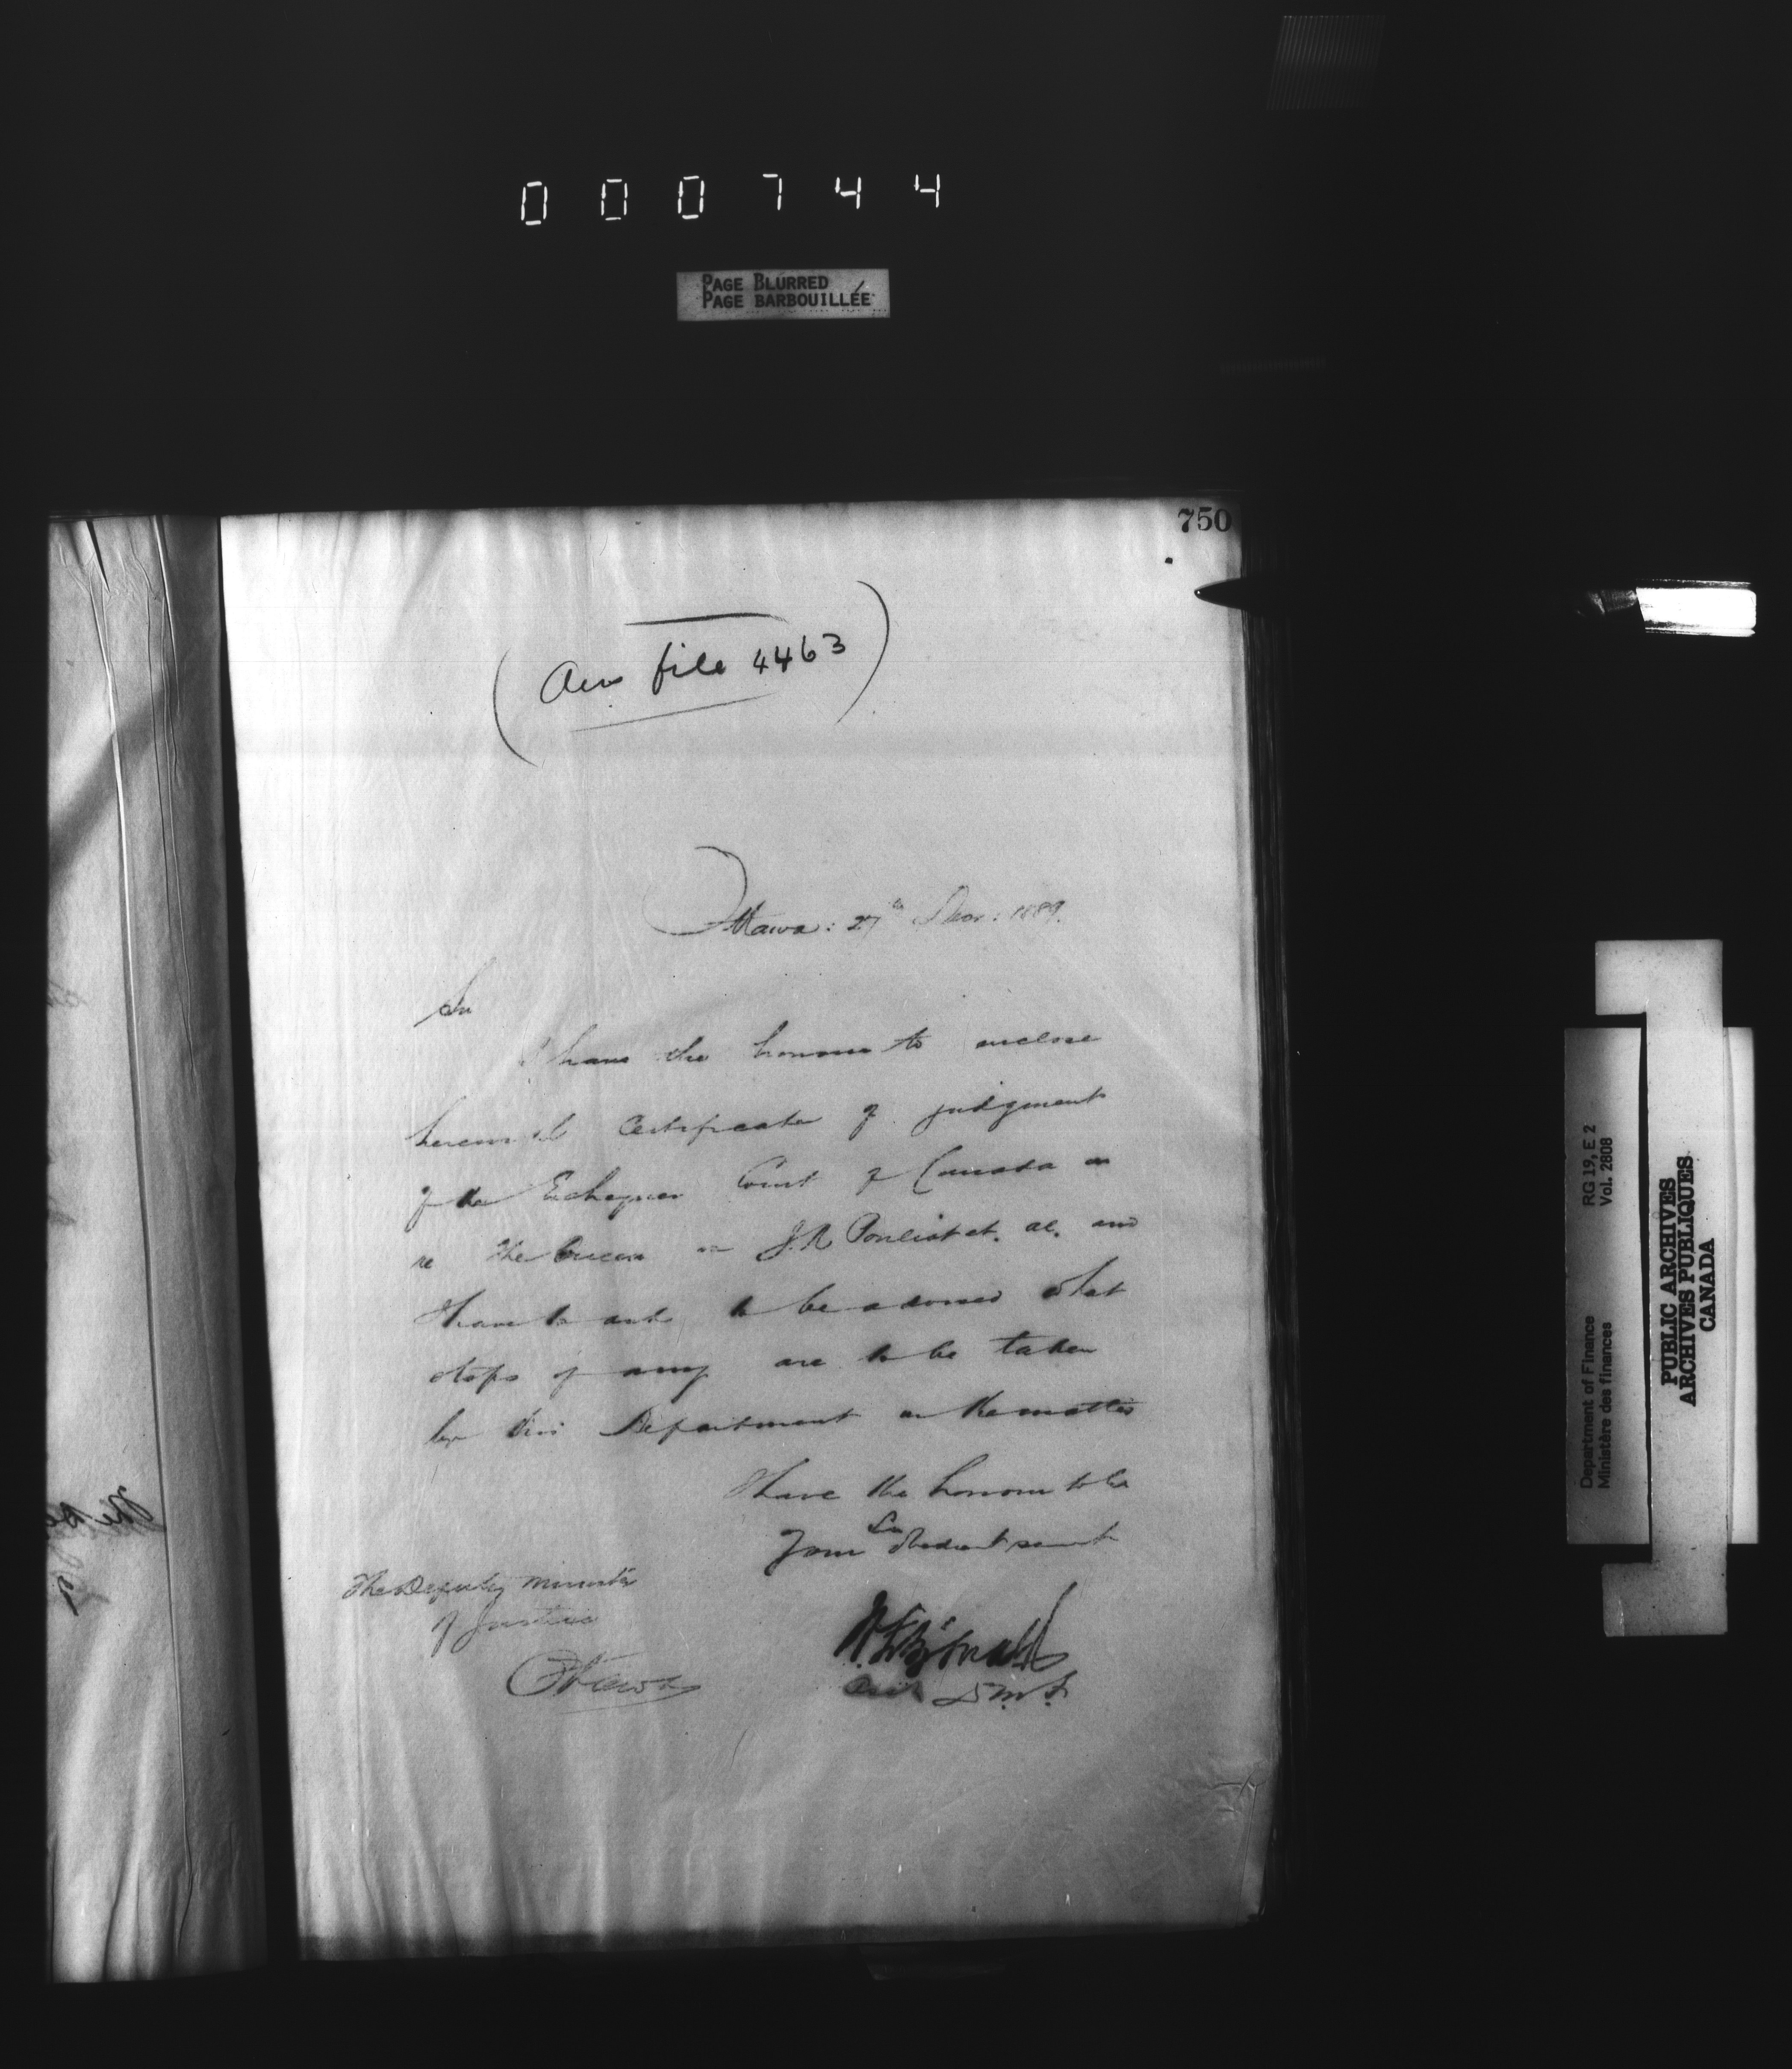 000744
PAGE BLURRED
PAGE BARBOUILLÉE
750
( file 4463 )
Ottawa: 27th 1889.
Sir
I have the honour to enclose
herewith Certificate of judgment
of the Exchequer Court of Canada in
re The Queen vs J.R. Pouliot et. al. and
I have to ask to be advised what
steps if any are to be taken
by this Department in the matter
I have the honour to be
Sir
Your obedient servant
The Deputy Minister
of Justice
Ottawa
D.M.F.
RG 19, E 2
Vol. 2808
Department of Finance
Ministère des finances
PUBLIC ARCHIVES
ARCHIVES PUBLIQUES
CANADA